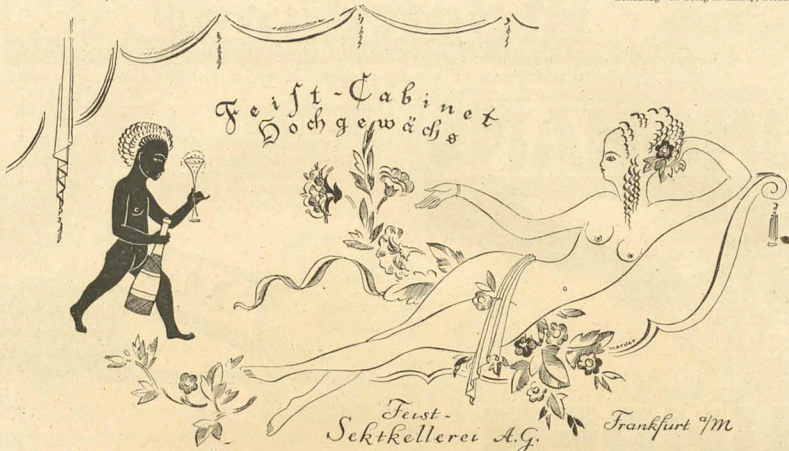 Feist-Cabinet
Hochgewächs
Feist-
Sektkellerei A.G.
Frankfurt a/M